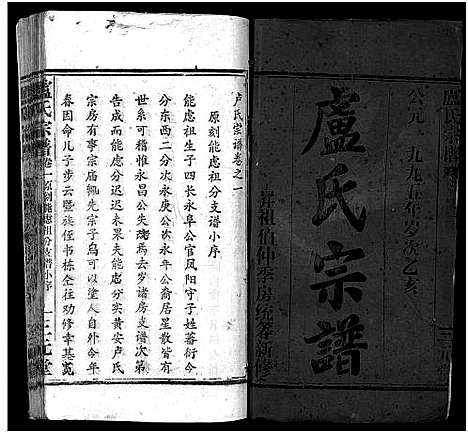 公元一九九五年岁次乙亥
盧氏宗譜
昇祖值仲季房统筹新修
卢氏宗谱卷之一
原刻能虑祖分支谱小序
能虑祖生子四长永阜公官凤阳守子姓蕃衍今
分东西二分次永庚公次永年公裔居星散皆有
世系可稽惟永昌公失考焉去岁诸房支谱次第
告成而能虑分迟迟未果夫能虑分实黄安卢氏
宗房有事宗庙辄先宗子乌可以涂人自外今年
春因命儿子步云暨族侄书栋仝往劝修幸基宽
盧氏宗譜 卷一 原刻能虑祖分支谱小序 一 三元堂